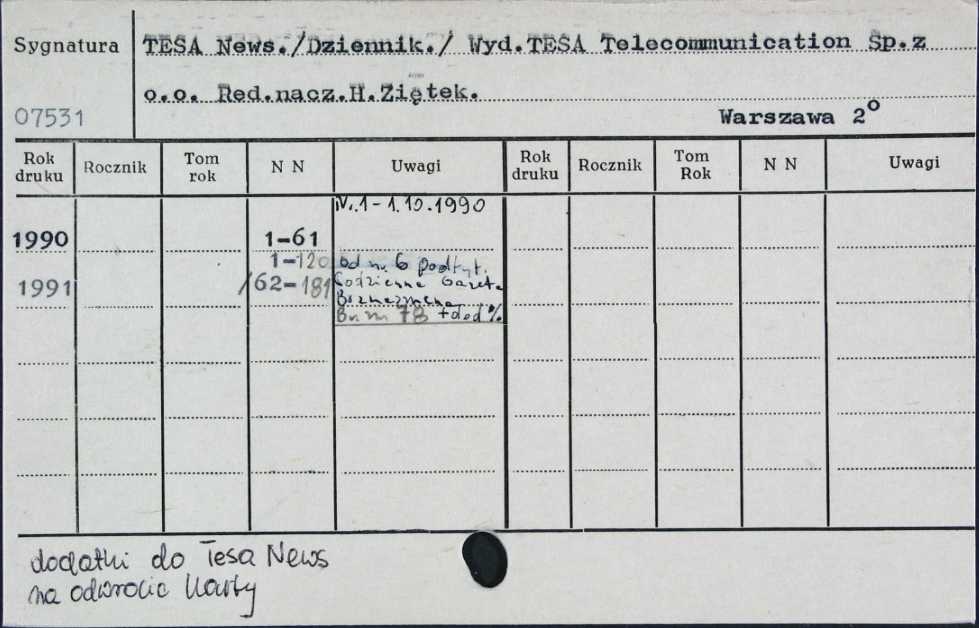 Sygnatura TESA News./Dziennik./ Wyd.TESA Telecommunication Sp.z
o.o. Red.nacz.H.Ziętek.
07531 Warszawa 2°
Rok druku Rocznik Tom rok N N Uwagi Rok druku Rocznik Tom Rok N N Uwagi
N.1-1.10.1990
1990 1-61
1-120 od n. 6 podtyt.
1991 /62-181 Codzienna Gazeta
Biznesmena
Br. nr 78 + dod %
dodatki do Tesa News
na odwrocie karty